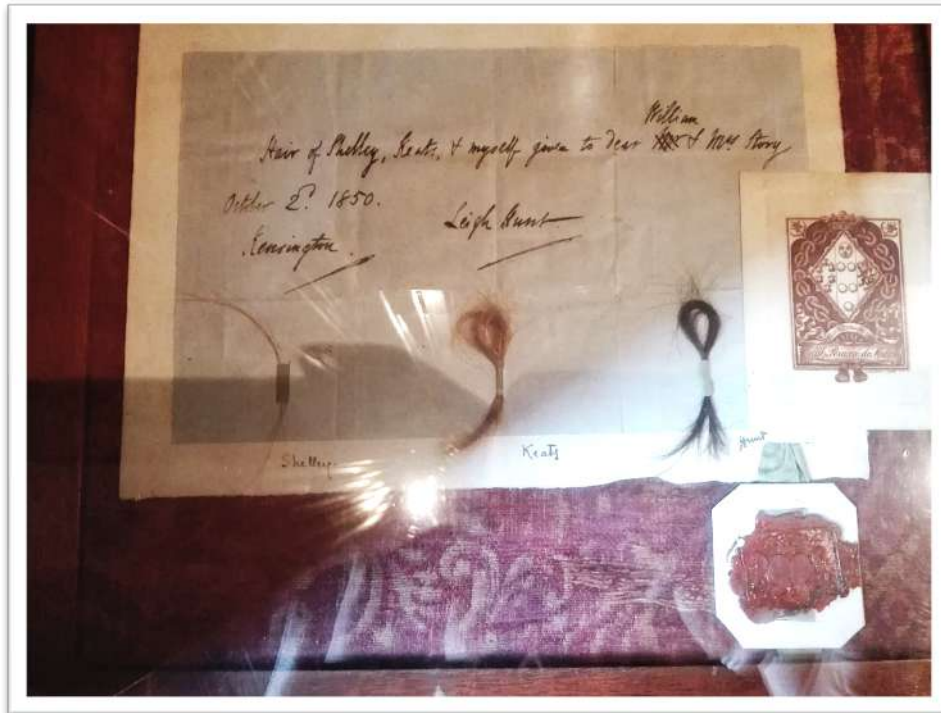 William
Hair of Shelley, Keats, & myself given to dear & Mrs Story
October 2d. 1850.
Leigh Hunt
Kensington.
Shelley
Keats
Hunt